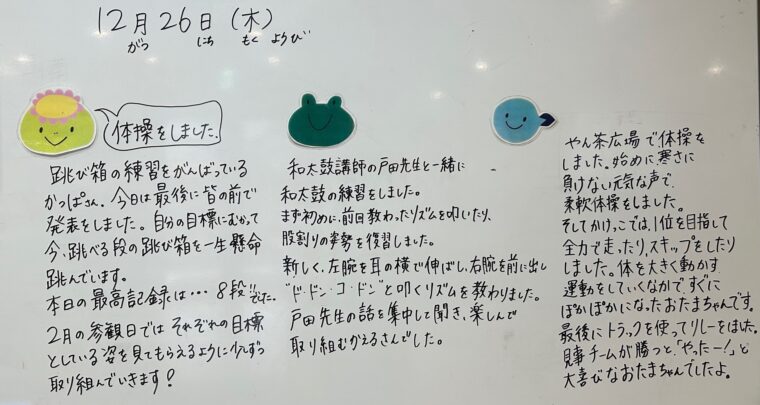 12月26日(木)
がつ にち もくようび
体操をしました。
跳び箱の練習をがんばっている
かっぱさん。今日は最後に皆の前で
発表をしました。自分の目標にむかって
今、跳べる段の跳び箱を一生懸命
跳んでいます。
本日の最高記録は…8段!!でした。
2月の参観日では それぞれの目標
としている姿を見てもらえるように少しずつ
取り組んでいきます!
和太鼓講師の戸田先生と一緒に
和太鼓の練習をしました。
まず初めに、前回教わったリズムを叩いたり、
股割りの姿勢を復習しました。
新しく、左腕を耳の横で伸ばし、右腕を前に出し
"ド・ドン・コ・ドン"と叩くリズムを教わりました。
戸田先生の話を集中して聞き、楽しんで
取り組むかえるさんでした。
やん茶広場で体操を
しました。始めに寒さに
負けない元気な声で、
柔軟体操をしました。
そしてかけっこでは、1位を目指して
全力で走ったり、スキップをしたり
しました。体を大きく動かす
運動をしていくなかで、すぐに
ぽかぽかになったおたまちゃんです。
最後にトラックを使ってリレーをしました。
見事チームが勝つと、「やったー!」と
大喜びなおたまちゃんでしたよ。